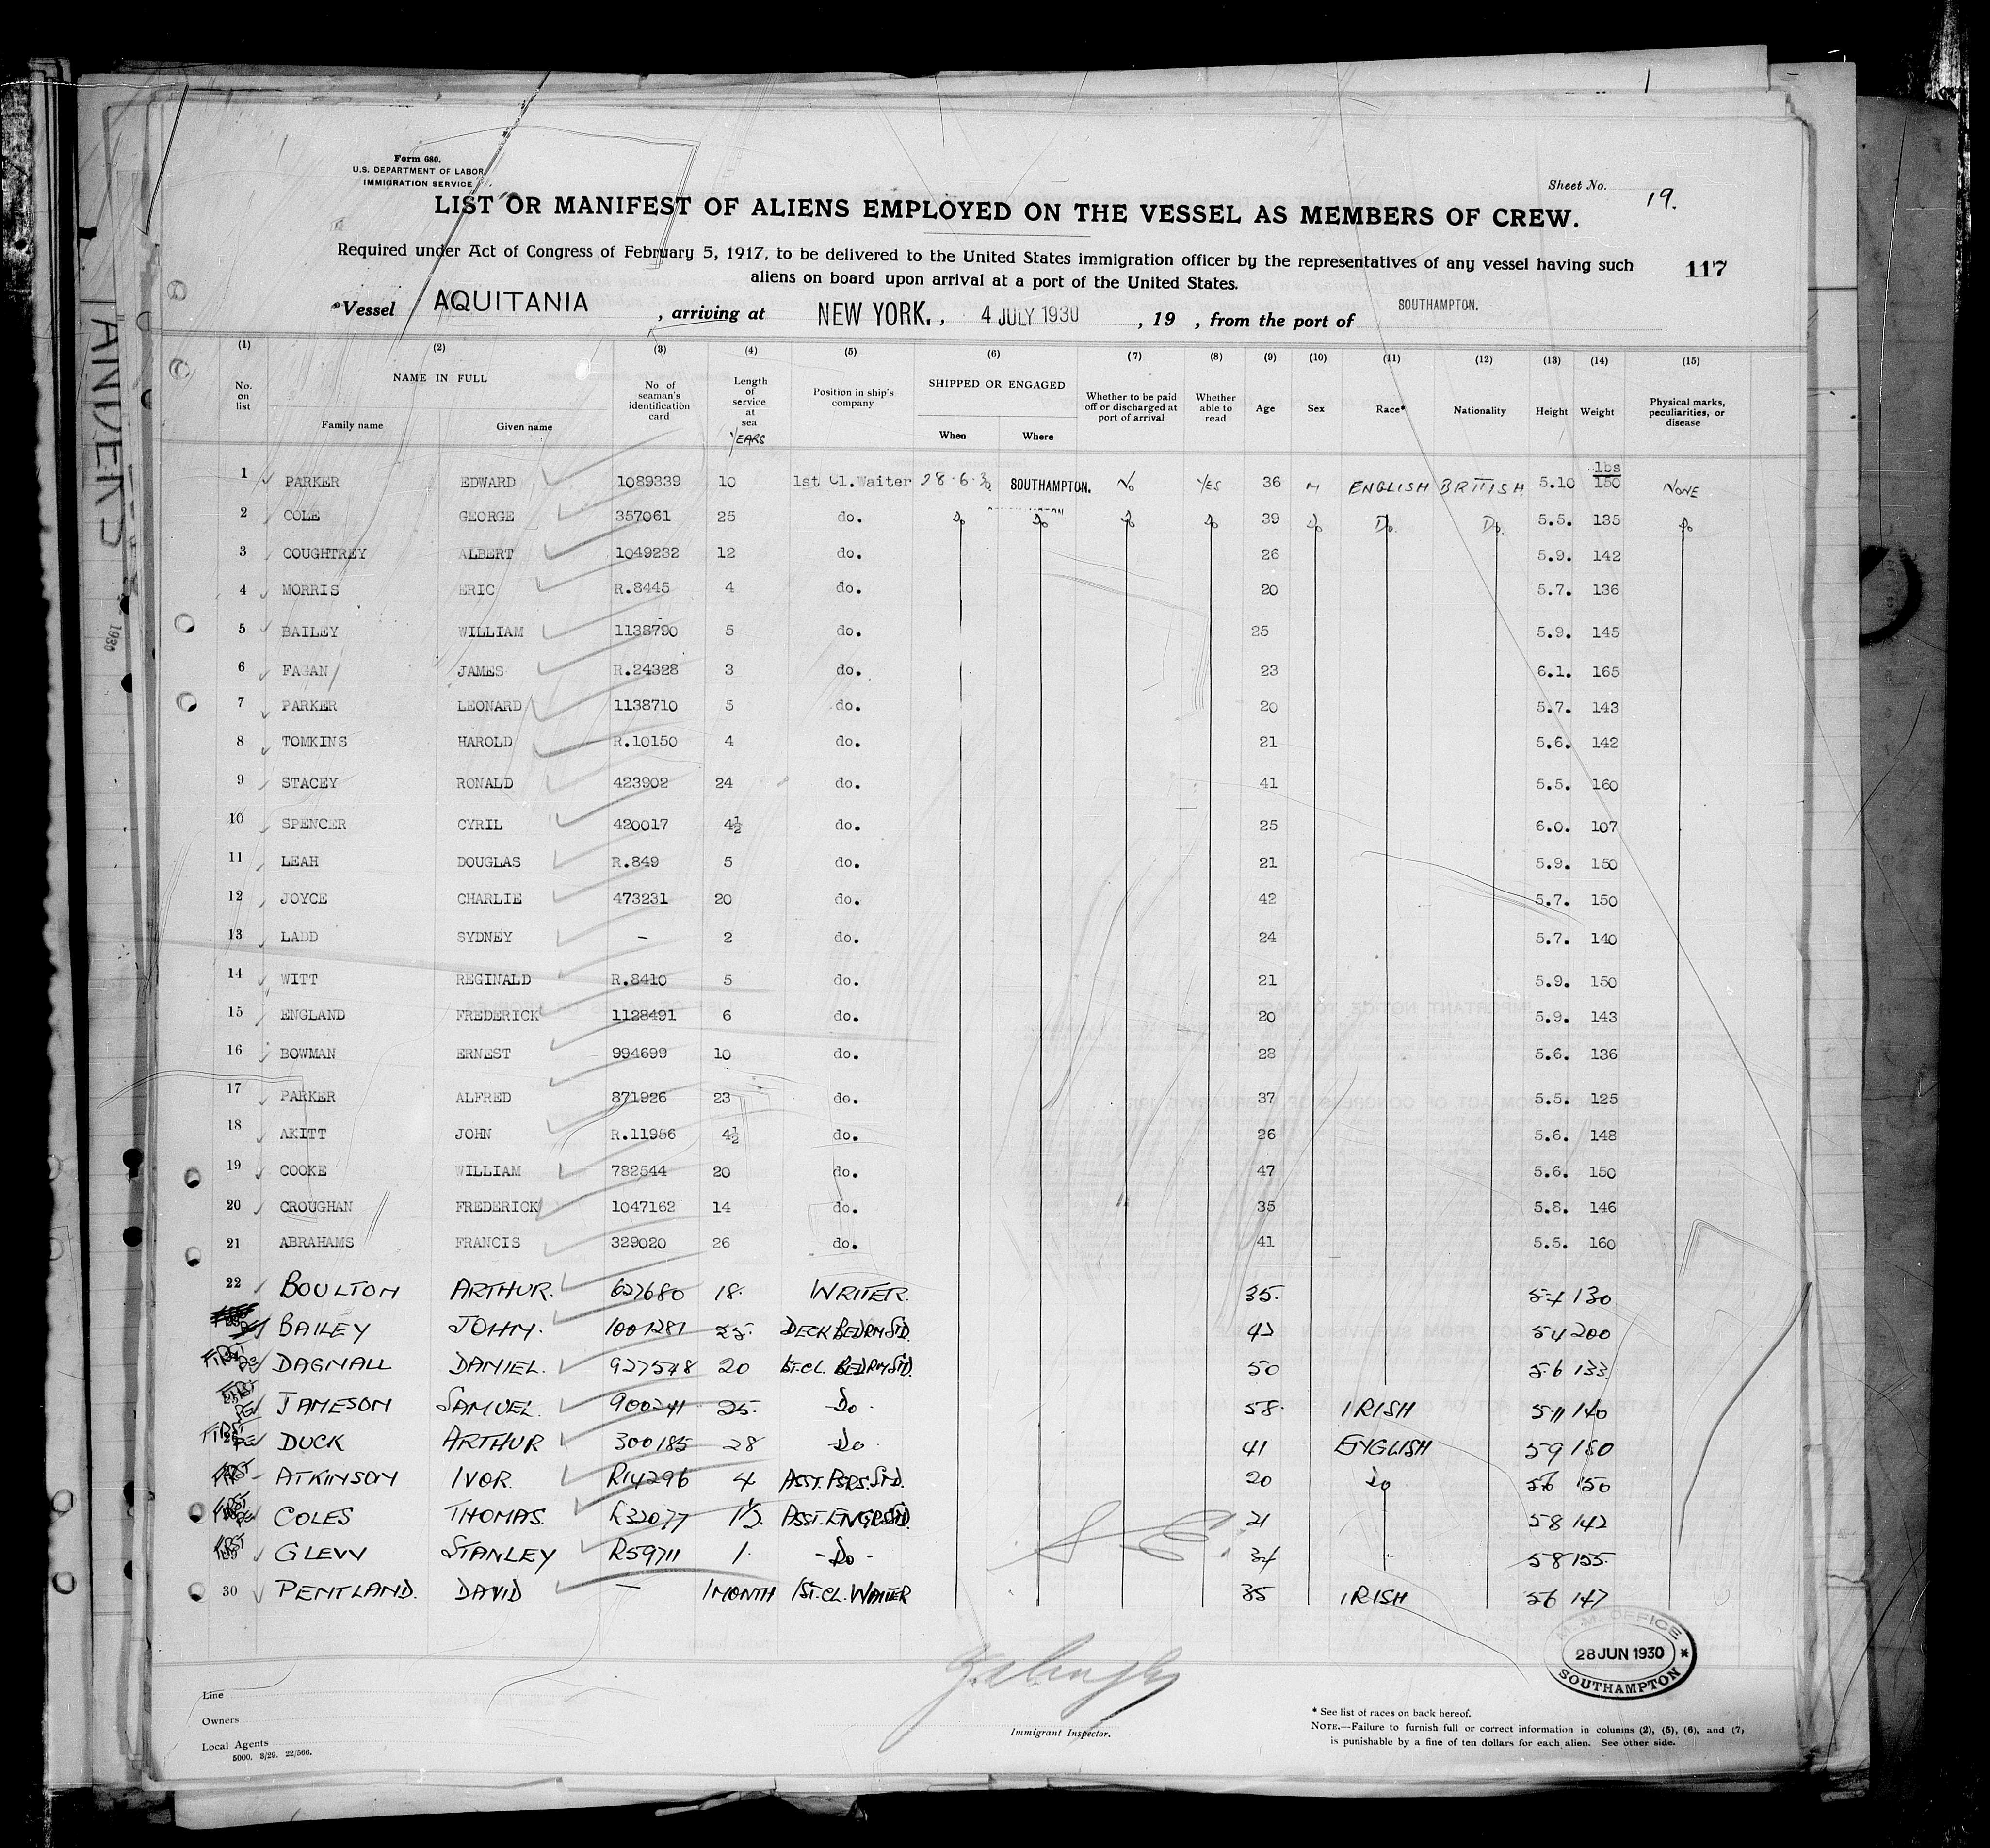 Form 680.
U.S. DEPARTMENT OF LABOR
IMMIGRATION SERVICE
Sheet No. 19.
LIST OR MANIFEST OF ALIENS EMPLOYED ON THE VESSEL AS MEMBERS OF CREW.
Required under Act of Congress of February 5, 1917, to be delivered to the United States immigration officer by the representatives of any vessel having such
aliens on board upon arrival at a port of the United States.
117
Vessel AQUITANIA, arriving at NEW YORK., 4 JULY 1930, 19 , from the port of SOUTHAMPTON.
(1) (2) (3) (4) (5) (6) (7) (8) (9) (10) (11) (12) (13) (14) (15)
No. on list NAME IN FULL Family name Given name No. of seaman's identification card Length of service at sea YEARS Position in ship's company SHIPPED OR ENGAGED When Where Whether to be paid off or discharged at port of arrival Whether able to read Age Sex Race* Nationality Height Weight Physical marks, peculiarities, or disease
lbs
1 PARKER EDWARD 1089339 10 1st Cl.Waiter 28.6.30 SOUTHAMPTON. No YES 36 M ENGLISH BRITISH 5.10 150 NONE
2 COLE GEORGE 357061 25 do. Do Do Do Do 39 Do Do. Do. 5.5. 135 Do
3 COUGHTREY ALBERT 1049232 12 do. 26 5.9. 142
4 MORRIS ERIC R.8445 4 do. 20 5.7. 136
5 BAILEY WILLIAM 1138790 5 do. 25 5.9. 145
6 FAGAN JAMES R.24328 3 do. 23 6.1. 165
7 PARKER LEONARD 1138710 5 do. 20 5.7. 143
8 TOMKINS HAROLD R.10150 4 do. 21 5.6. 142
9 STACEY RONALD 423902 24 do. 41 5.5. 160
10 SPENCER CYRIL 420017 4½ do. 25 6.0. 107
11 LEAH DOUGLAS R.849 5 do. 21 5.9. 150
12 JOYCE CHARLIE 473231 20 do. 42 5.7. 150
13 LADD SYDNEY - 2 do. 24 5.7. 140
14 WITT REGINALD R.8410 5 do. 21 5.9. 150
15 ENGLAND FREDERICK 1128491 6 do. 20 5.9. 143
16 BOWMAN ERNEST 994699 10 do. 28 5.6. 136
17 PARKER ALFRED 871926 23 do. 37 5.5. 125
18 AKITT JOHN R.11956 4½ do. 26 5.6. 148
19 COOKE WILLIAM 782544 20 do. 47 5.6. 150
20 CROUGHAN FREDERICK 1047162 14 do. 35 5.8. 146
21 ABRAHAMS FRANCIS 329020 26 do. 41 5.5. 160
22 BOULTON ARTHUR. 627680 18. WRITER. 35. 130
BAILEY JOHN. 1001281 25. DECK BEDRM STD. 42 54 200
DAGNALL DANIEL. 927548 20 1ST.CL. BEDRM STD. 50 5.6 133.
JAMESON SAMUEL. 900241 25. Do. 58. IRISH 5.11 140
DUCK ARTHUR 300185 28 Do 41 ENGLISH 59 180
ATKINSON IVOR. R14296 4 ASST. PSRS. STD. 20 Do 56 150
COLES THOMAS. R32077 1½. ASST. ENGRS STD. 21 58 142
GLEVY STANLEY R59711 1. -Do- 58 155.
30 PENTLAND. DAVID - 1 MONTH 1ST.CL. WAITER 35 IRISH 56 147
M.M. OFFICE
28 JUN 1930
SOUTHAMPTON
Line
Owners
Local Agents
5000. 3/29. 22/566.
Immigrant Inspector.
* See list of races on back hereof.
NOTE.—Failure to furnish full or correct information in columns (2), (5), (6), and (7,
is punishable by a fine of ten dollars for each alien. See other side.